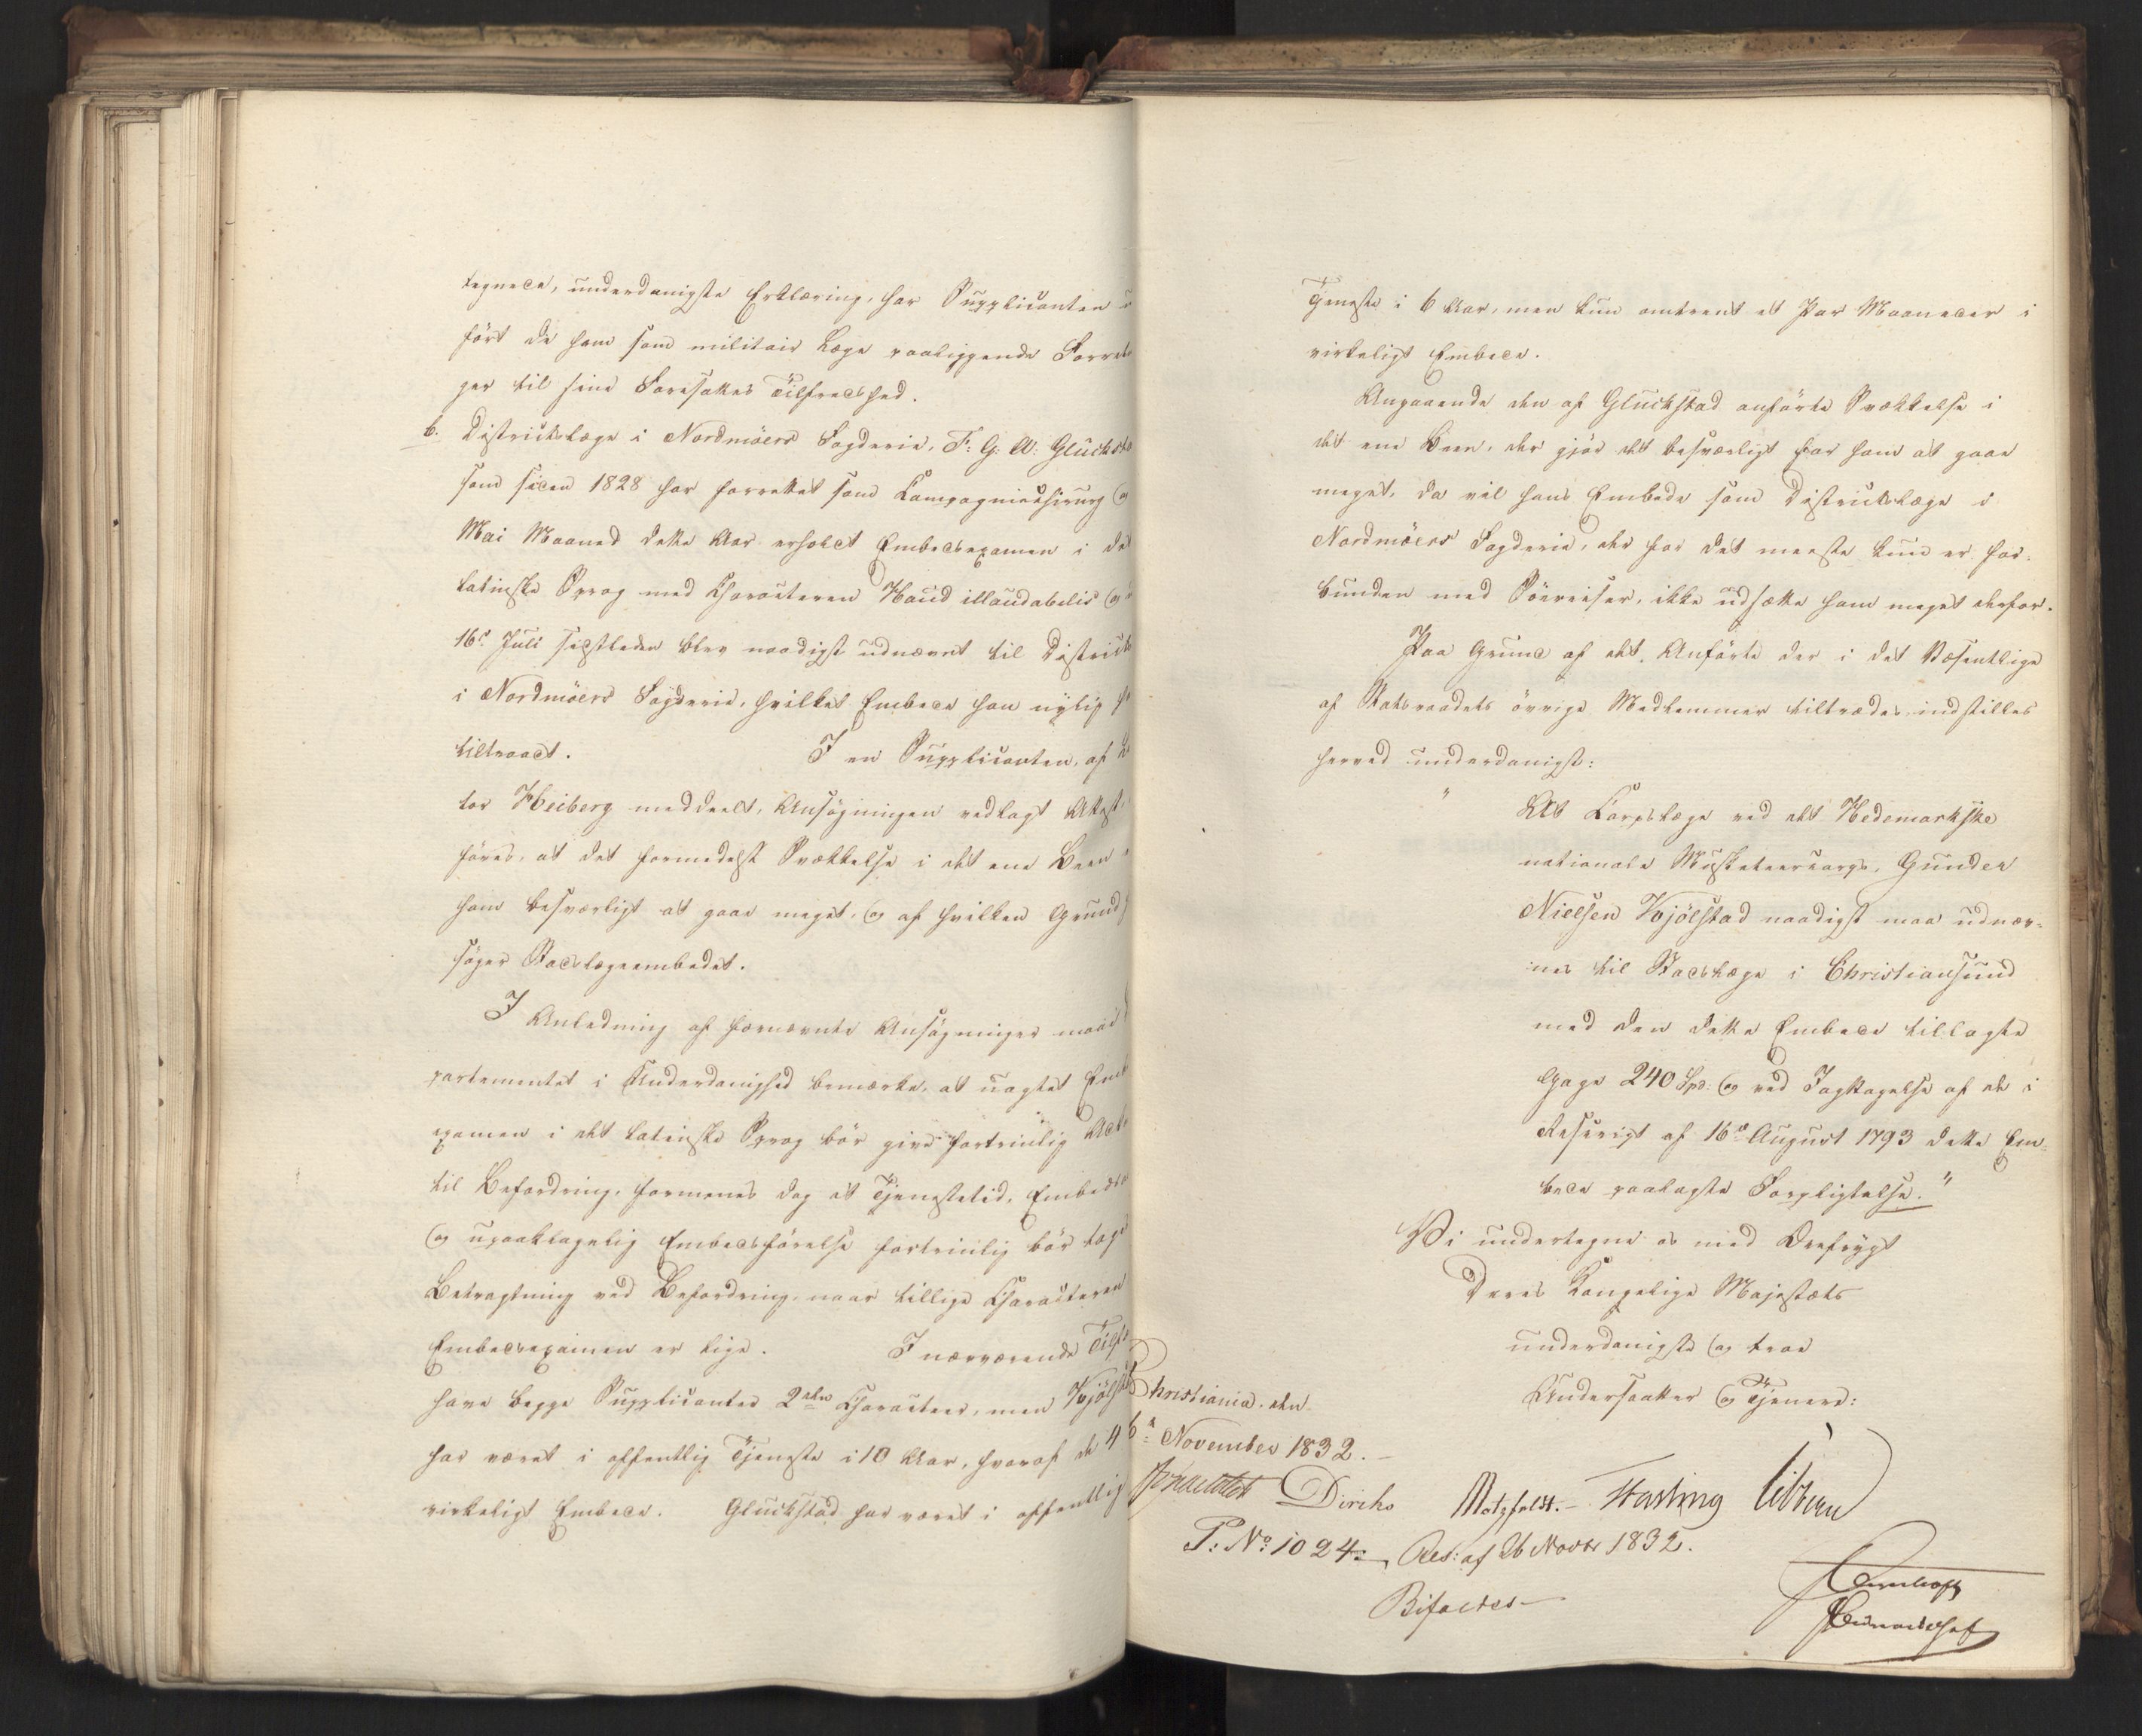 tegnede, underdanigste Erklæring, har Supplicanten
ført de ham som militair Læge paaliggende Forret
ger til sine Foresattes Tilfredshed.
b. Districtslæge i Nordmöers Fogderie, F: G: A: Glückst
som siden 1828 har forrettet som Compagniechirurg og
Mai Maaned dette Aar erholdt Embedsexamen i det
latinske Sprog med Characteren Haud illaudabilis og
16de Juli sidstleden blev naadigst udnævnt til District
i Nordmöers Fogderie, hvilket Embede han nylig h
tiltraadt. I en Supplicanten, af
tor Heiberg meddeelt, Ansøgningen vedlagt Attest,
føres, at det formedelst Svækkelse i det ene Been
ham besværligt at gaae meget, og af hvilken Grund
søger Stadslægeembedet.
I Anledning af fornævnte Ansøgninger maae
partementet i Underdanighed bemærke, at uagtet Emb
examen i det latinske Sprog bör give fortrinlig Adk
til Befordring, formenes dog at Tjenestetid, Embeds
og upaaklagelig Embedsførelse fortrinlig bör tages
Betragtning ved Befordring, naar tillige Characteren
Embedsexamen er lige. I nærværende Tilf
have begge Supplicanter 2den Character, men Kjölst
har været i offentlig Tjeneste i 10 Aar, hvoraf de 4
virkeligt Embede. Gluckstad har været i offentlig
Tjeneste i 6 Aar, men kun omtrent et Par Maaneder i
virkeligt Embede.
Angaaende den af Gluckstad anførte Svækkelse i
det ene Been, der gjør det besværligt for ham at gaae
meget, da vil hans Embede som Districtslæge i
Nordmöers Fogderie, der for det meeste kun er for-
bunden med Söereiser, ikke udsætte ham meget derfor.
Paa Grund af det Anførte der i det Væsentlige
af Statsraadets övrige Medlemmer tiltrædes, indstilles
herved underdanigst:
" At Corpslæge ved det Hedemarkske
nationale Musketeercorps, Gunder
Nielsen Kjölstad naadigst maa udnæv-
nes til Stadslæge i Christiansund
med den dette Embede tillagte
Gage 240 Spd: og ved Iagttagelse af de i
Rescript af 16de August 1793 dette Em-
bede paalagte Forpligtelse."
Vi undertegne os med Ærefrygt
Deres Kongelige Majestæts
underdanigste og troe
Undersaatter og Tjenere:
Christiania, den
6te November 1832.
Diriks Motzfeldt. Fasting Vibran
P: No: 1024. Res: af 26 Novbr 1832.
Bifaldes